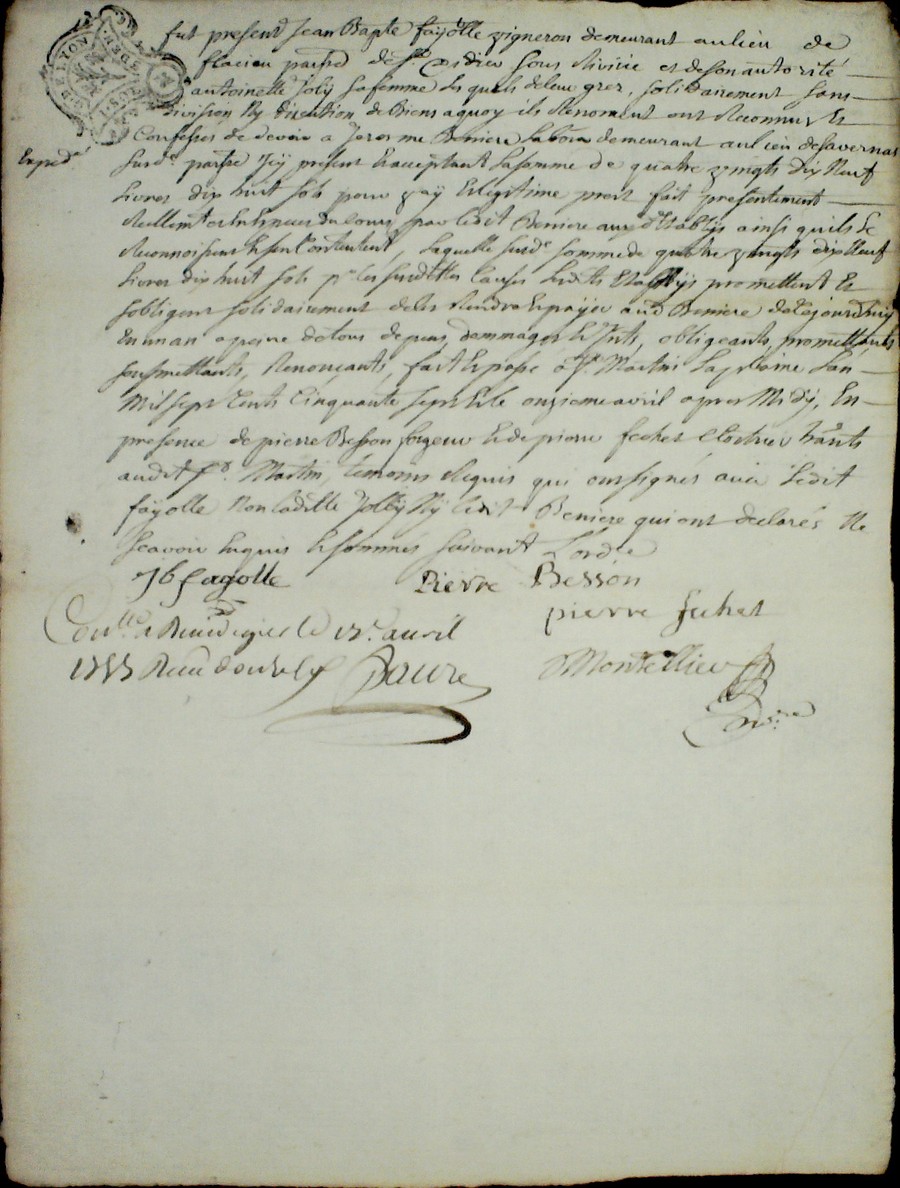 fut present Jean Bapte fayolle vigneron demeurant au lieu de
flacieu parsse de St Didier sous Rivirie et de son autorité
antoinette Joly sa femme Lesquels de leur grez, solidairement sans
division Ny discution de Biens aquoy ils Renoncent ont Reconnu Et
Confessés de devoir a Jerosme Beniere Labour demeurant au lieu de savernas
Exped
surde parsse Icy present Et acceptant La somme de quatre vingts dix Neuf
Livres dix huit sols pour vray Et legitime prest fait presentement
Reellmt par Ledit Beniere auxd Establijs ainsi quils Le
Reconnoissent Et sen Contentent, Laquelle surde somme de quatre vingts dix Neuf
Livres dix huit sols pr Les Causes Lesdts Establijs promettent Et
sobligent solidairement de les Rendre Et païer aud Beniere de Cejourdhuy
En un an a peine de tous depens, dommages Et Ints, obligeants, promettants
soumettants, Renonçants, fait Et passé a St Martin La plaine Lan
Mil sept Cents Cinquante sept Et le onzieme avril apres Midÿ, En
presence de pierre Besson forgeur Et de pierre fechet Cloutier hants
audit St Martin, temoins Requis qui ont signés avec Ledit
fayolle Non Ladite Jolly Nÿ Ledit Beniere qui ont declarés Ne
scavoir Enquis Et sommés suivant Lordce
Jb fayolle Pierre Besson
pierre fechet
Conllé a Rivedegier le avril
Reçu douze s Montellier